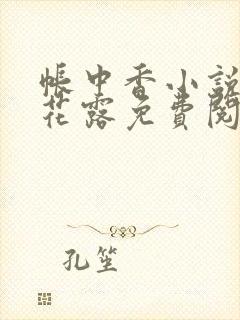 帳中香小說
花露免費閱
孔笙